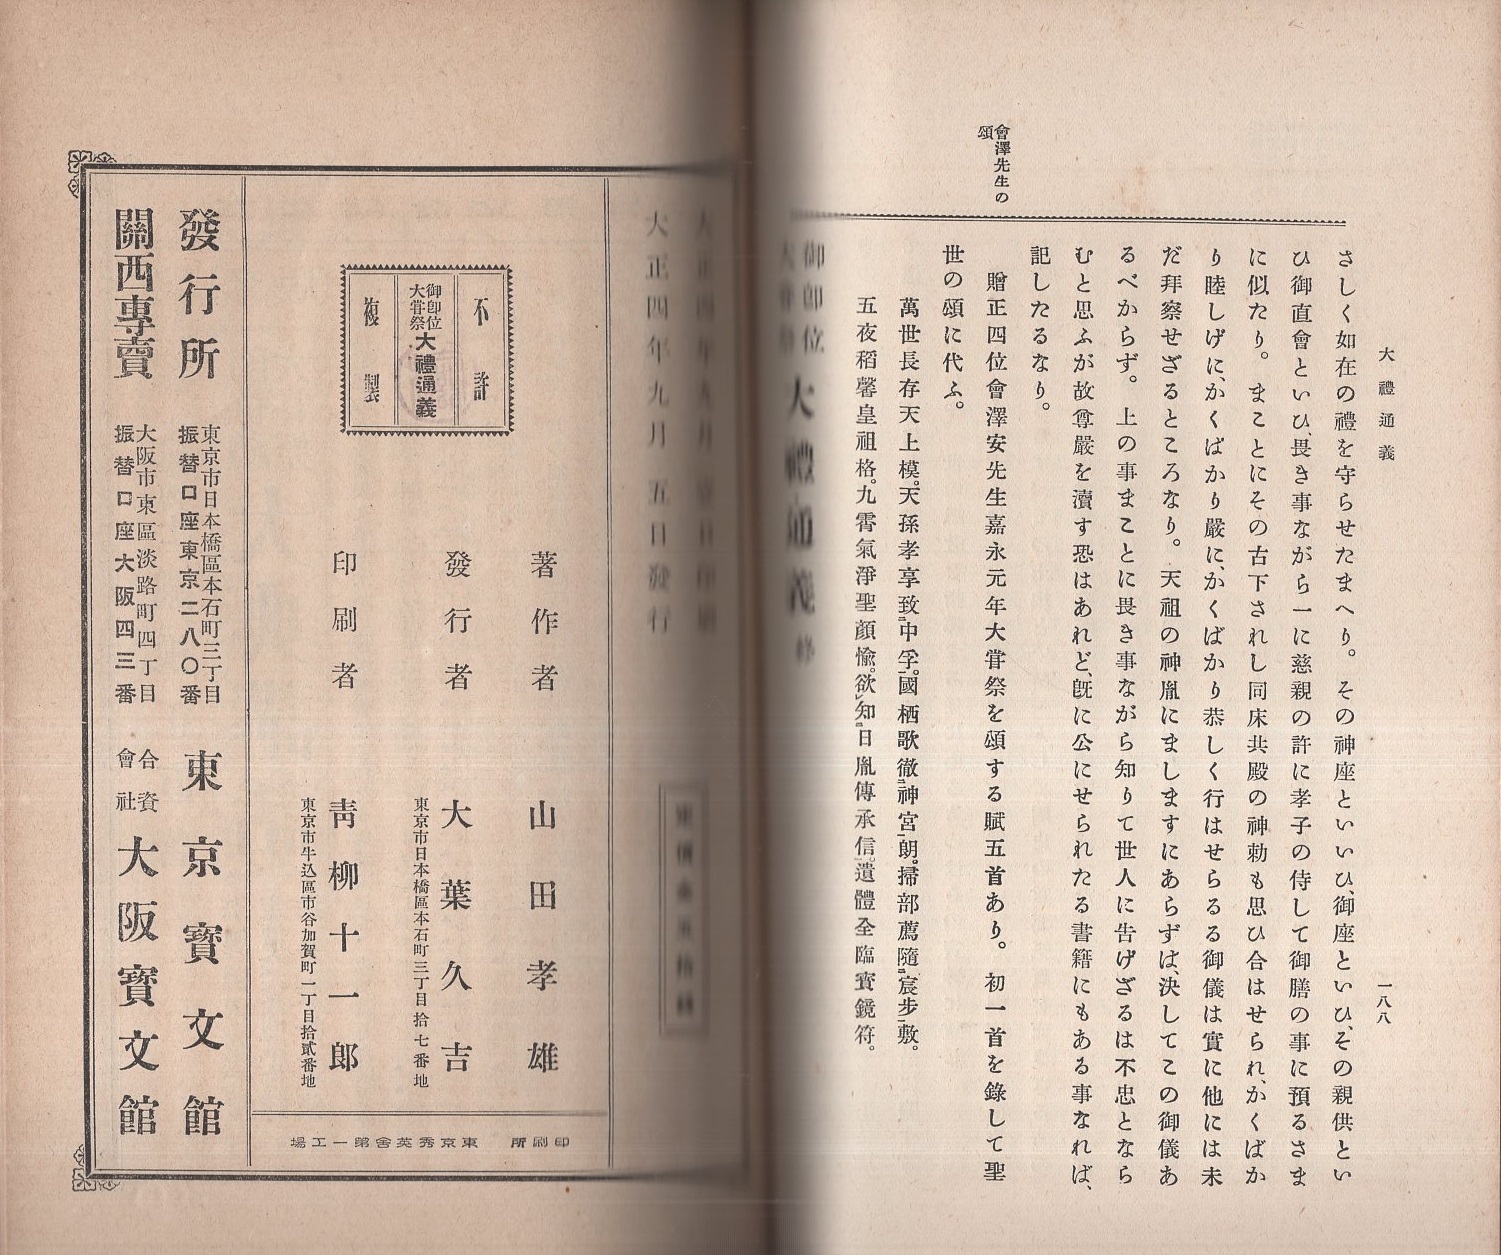 大禮通義
一八八
會澤先生の
頌
さしく如在の禮を守らせたまへり。その神座といいひ、御座といひ、その親供とい
ひ御直會といひ、畏き事ながら一に慈親の許に孝子の侍して御膳の事に預るさま
に似たり。まことにその古下されし同床共殿の神勅も思ひ合はせられ、かくばか
り睦しげに、かくばかり嚴に、かくばかり恭しく行はせらるる御儀は實に他には未
だ拜察せざるところなり。天祖の神胤にましますにあらずは、決してこの御儀あ
るべからず。上の事まことに畏き事ながら知りて世人に告げざるは不忠となら
むと思ふが故尊嚴を瀆す恐はあれど、既に公にせられたる書籍にもある事なれば、
記したるなり。
贈正四位會澤安先生嘉永元年大甞祭を頌する賦五首あり。初一首を錄して聖
世の頌に代ふ。
萬世長存天上模。天孫孝享致中孚。國栖歌徹神宮朗。掃部薦隨扆步敷。
五夜稻馨皇祖格。九霄氣淨聖顏愉。欲知日胤傳承信。遺體全臨寶鏡符。
御卽位
大甞祭 大禮通義 終
大正四年九月五日發行
不許
御卽位
大甞祭 大禮通義
複製
著作者 山田孝雄
發行者 大葉久吉
東京市日本橋區本石町三丁目拾七番地
印刷者 靑柳十一郎
東京市牛込區市谷加賀町一丁目拾貳番地
印刷所 東京秀英舍第一工場
發行所
東京市日本橋區本石町三丁目
振替口座東京二八〇番
東京寶文館
關西專賣
大阪市東區淡路町四丁目
振替口座大阪四三番
合資
會社
大阪寶文館